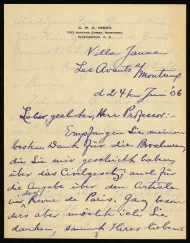 Villa Jaune
Les Avants s/ Montreux
d. 24ten Juni '06
Lieber, geehrter, Herr Professor:
Empfangen Sie meinen
besten Dank für die Brochuren,
die Sie mir geschickt haben,
über das Civilgesetz, auch für
die Angabe über den Artikel
Revue de Paris. Ganz beson-
ders aber möchte ich Sie
danken, sammt Ihrer lieben